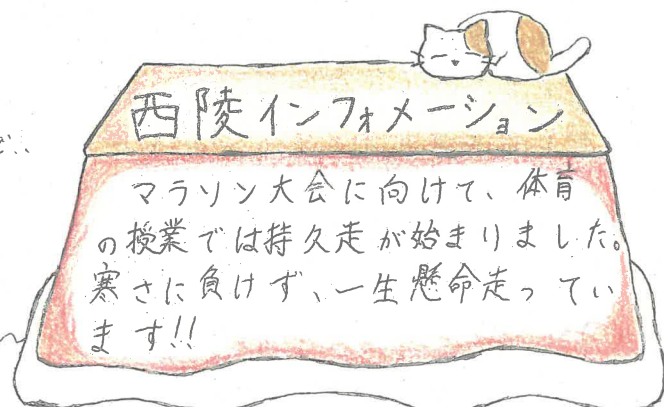 西陵インフォメーション
マラソン大会に向けて、体育
の授業では持久走が始まりました。
寒さに負けず、一生懸命走ってい
ます!!